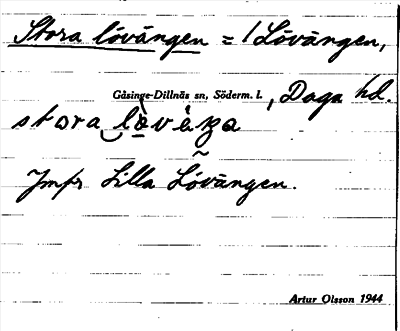 Stora lövängen = / Lövängen,
Gåsinge-Dillnäs sn, Söderm. l. , Daga hd.
stora
Jmfr Lilla Lövängen.
Artur Olsson 1944